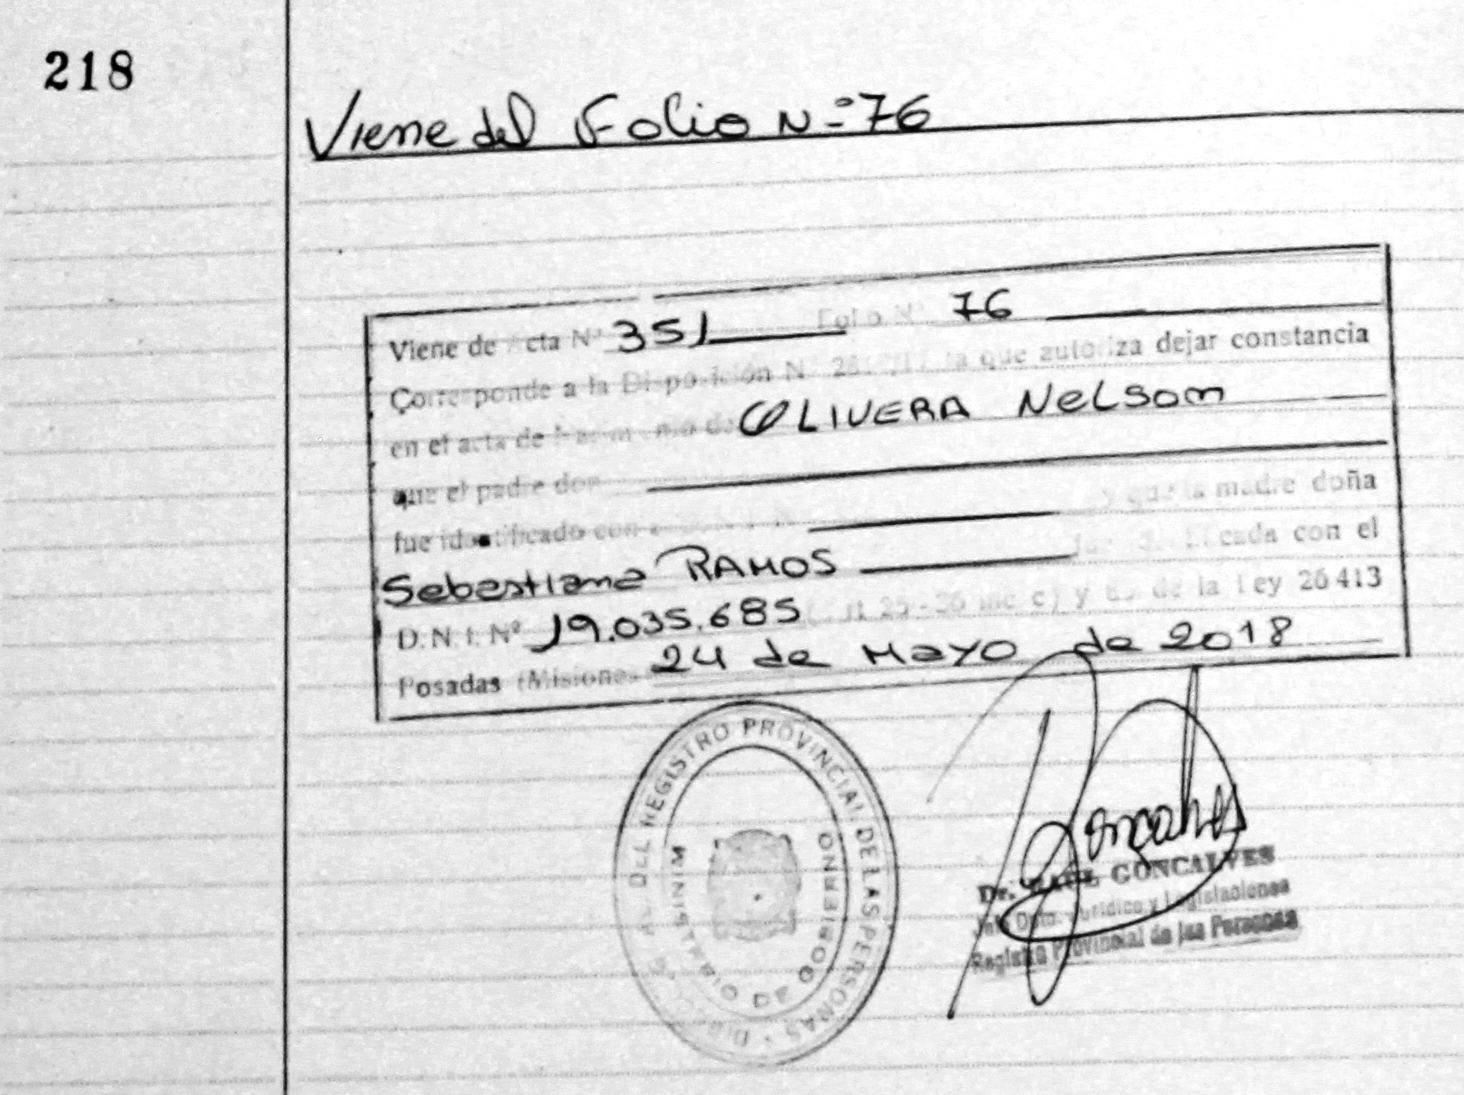 218
Viene del Folio Nº 76
Viene de Acta Nº 351 Folio Nº 76
Corresponde a la Disposición Nº la que autoriza dejar constancia
en el acta de Nacimiento de OLIVERA Nelsom
que el padre don
fue identificado con y que la madre doña
Sebastiana RAMOS cada con el
D.N.I. Nº 19.035.685 25-36 inc c) y de la Ley 26413
Posadas (Misiones 24 de Mayo de 2018
DEL REGISTRO PROVINCIAL DE LAS PERSONAS
MINISTERIO DE GOBIERNO
Goncalves
Dr. RAUL GONCALVES
Jefe Dpto. Jurídico y Legislaciones
Registro Provincial de las Personas